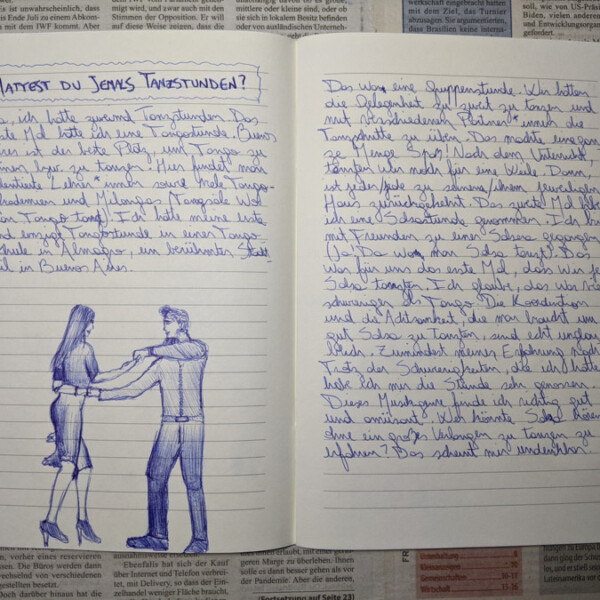 Es ist unwahrscheinlich, dass
es Ende Juli zu einem Abkom-
men mit dem IWF kommt. Aber
mit den Stimmen der Opposition. Er will
auf diese Weise zeigen, dass die
mittlere oder kleine sind, oder ob
sie sich in lokalem Besitz befinden
oder von ausländischen Unterneh-
werkschaft eingebracht hatten
mit dem Ziel, das Turnier
abzusagen. Sie argumentierten,
dass Brasilien keine interna-
soll, wie von US-Präsi
Biden, vielen anderen
und Entwicklungsorgan
gefordert
HATTEST DU JEMALS TANZSTUNDEN?
, ich hatte zweimal Tanzstunden. Das
te Mal hatte ich eine Tangostunde. Buenos
res ist der beste Platz, um Tango zu
nen bzw. zu tanzen. Hier findet man
Lehrer*innen sowie viele Tango-
und Milongas Tangosäle wo
man Tango tanzt! Ich hatte meine erste
nd einzige Tangostunde in einer Tango-
hule in Almagro, ein berühmter Stadt-
eil in Buenos Aires.
Das war eine Gruppenstunde. Wir hatten
die Gelegenheit zu zweit zu tanzen und
mit verschiedenen Partner*innen die
Tanzschritte zu üben. Das machte eine gan-
ze Menge Spaß! Nach dem Unterricht,
tanzten wir noch für eine Weile. Dann,
ist jeder/jede zu seinem/ihrem jeweiligen
Haus zurückgekehrt. Das zweite Mal habe
ich eine Salsastunde genommen. Ich bin
mit Freunden zu einer Salsera gegangen
(Ja! Da wo man Salsa tanzt). Das
war für uns das erste Mal, dass wir je
Salsa tanzten. Ich glaube, das war viel
schwieriger als Tango. Die Koordination
und die Achtsamkeit, die man braucht um
gut Salsa zu tanzen, sind echt unglau-
blich. Zumindest meiner Erfahrung nach.
Trotz der Schwierigkeiten, die ich hatte
habe ich mir die Stunde sehr genossen.
Dieses Musikgenre finde ich richtig gut
und amüsant. Wer könnte Salsa hören
ohne ein großes Verlangen zu tanzen zu
erfahren? Das scheint mir undenkbar.
vorher eines reservieren
müssen. Die Büros werden dann
gestellten besetzt.
Doch darüber hinaus hat die
Ebenfalls hat sich der Kauf
über Internet und Telefon verbrei-
tet, mit Delivery, so dass der Ein-
zelhandel weniger Fläche braucht,
geren Marge zu überleben. Ihnen
solle es dann besser gehen als vor
der Pandemie. Aber die anderen,
(Fortsetzung auf Seite 23)
Unterhaltung
Kleinanzeigen
Gemeinschaften
Wirtschaft